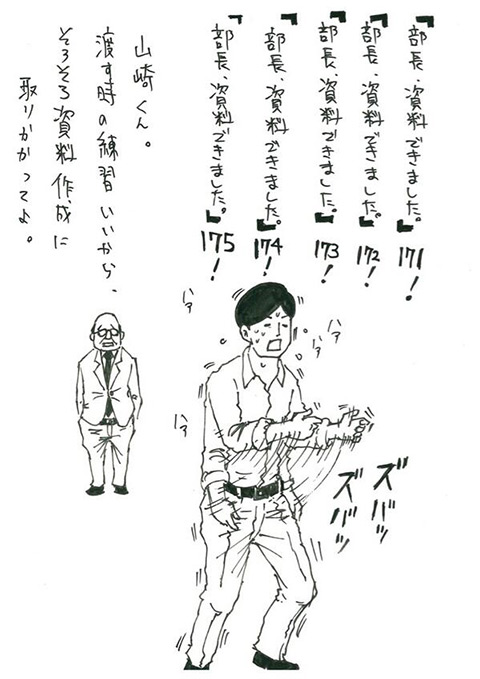 『部長、資料できました。』171!
『部長、資料できました。』172!
『部長、資料できました。』173!
『部長、資料できました。』174!
『部長、資料できました。』175!
山崎くん。
渡す時の練習いいから、
そろそろ資料作成に
取りかかってよ。
ハァ
ハァ
ハァ
ハァ
ズバッ
ズバッ